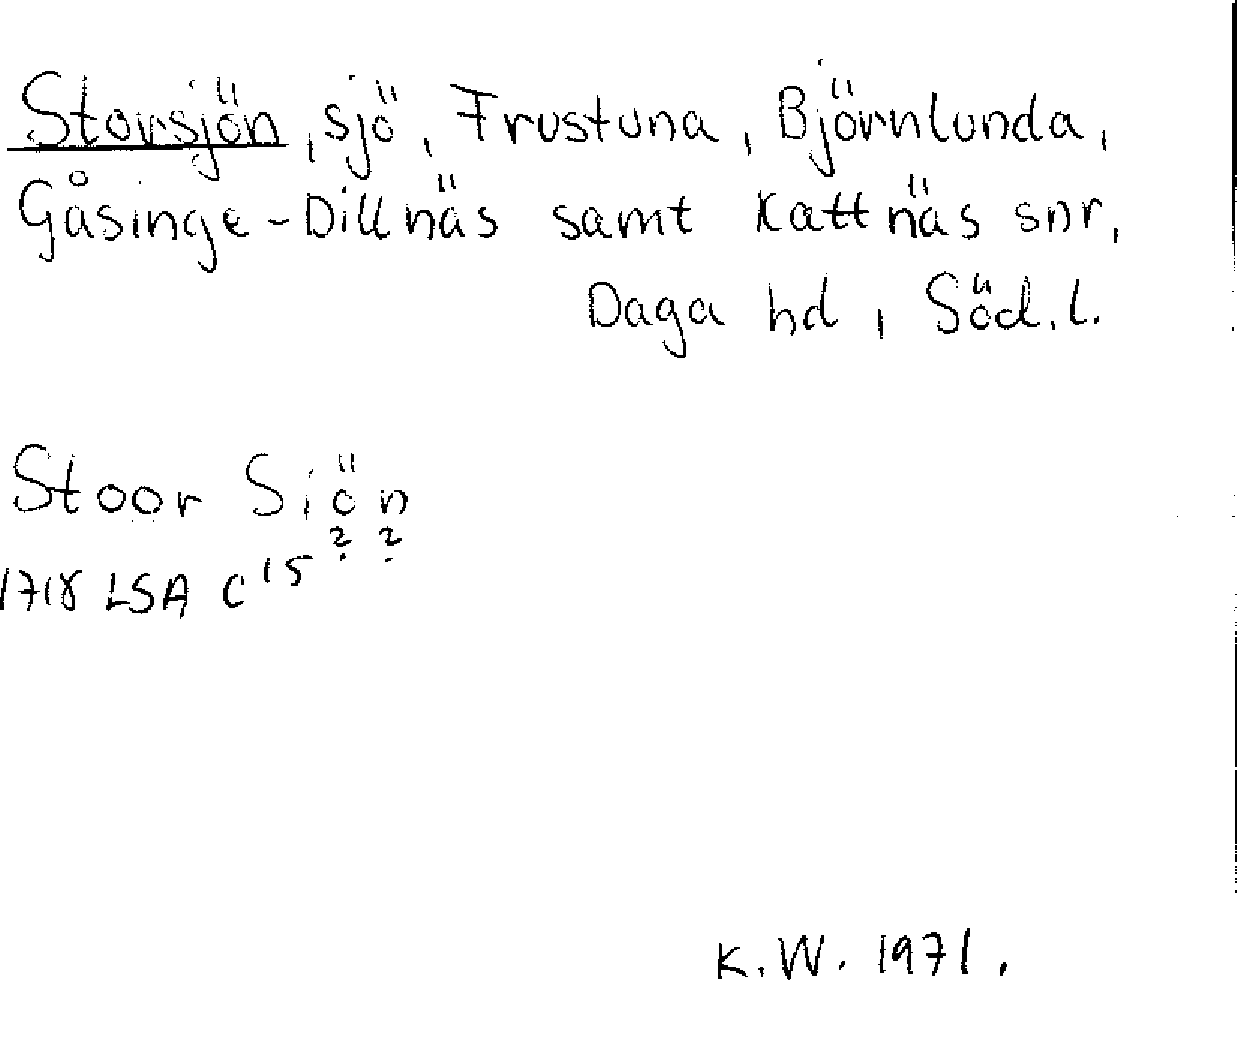 Storsjön, sjö, Frustuna, Björnlunda,
Gåsinge-Dillnäs samt Kattnäs snr,
Daga hd, Söd.l.
Stoor Siön
? ?
1718 LSA C 15
K.W. 1971.